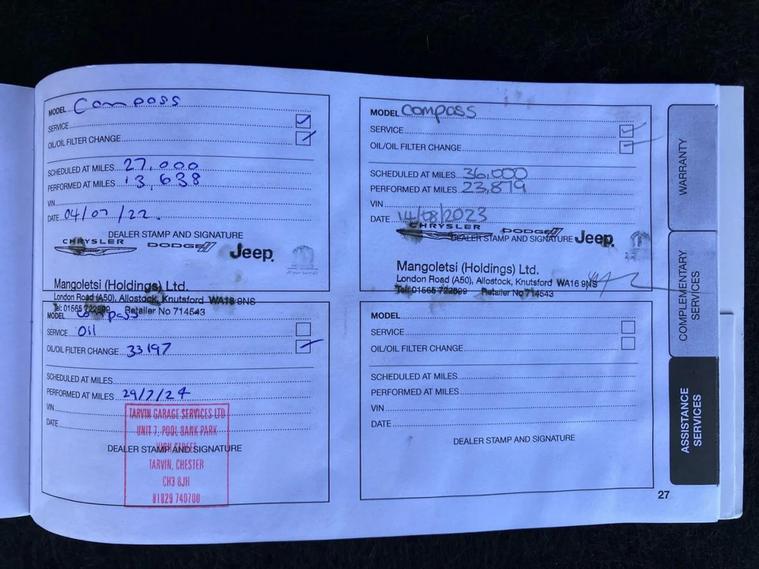 MODEL Compass
SERVICE
OIL/OIL FILTER CHANGE
SCHEDULED AT MILES 27,000
PERFORMED AT MILES 13,638
VIN
DATE 04/07/22.
DEALER STAMP AND SIGNATURE
CHRYSLER DODGE Jeep
Mangoletsi (Holdings) Ltd.
London Road (A50), Allostock, Knutsford WA16 9NS
Tel: 01565 722899 Retailer No 714543
MODEL Compass
SERVICE Oil
OIL/OIL FILTER CHANGE 33197
SCHEDULED AT MILES
PERFORMED AT MILES 29/7/24
VIN
DATE
DEALER STAMP AND SIGNATURE
TARVIN GARAGE SERVICES LTD
UNIT 7, POOL BANK PARK
HIGH STREET
TARVIN, CHESTER
CH3 8JH
01829 740700
MODEL Compass
SERVICE
OIL/OIL FILTER CHANGE
SCHEDULED AT MILES 36,000
PERFORMED AT MILES 23,879
VIN
DATE 14/08/2023
CHRYSLER DODGE Jeep
DEALER STAMP AND SIGNATURE
Mangoletsi (Holdings) Ltd.
London Road (A50), Allostock, Knutsford WA16 9NS
Tel: 01565 722899 Retailer No 714543
MODEL
SERVICE
OIL/OIL FILTER CHANGE
SCHEDULED AT MILES
PERFORMED AT MILES
VIN
DATE
DEALER STAMP AND SIGNATURE
WARRANTY
COMPLEMENTARY
SERVICES
ASSISTANCE
SERVICES
27